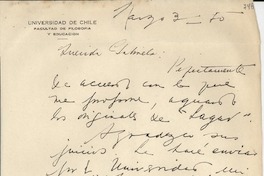 UNIVERSIDAD DE CHILE
FACULTAD DE FILOSOFIA
Y EDUCACION
Marzo 3 - 50
Querida Gabriela:
Perfectamente
de acuerdo con lo que
me propone, aguardo
los originales de "Lagar".
Agradezco sus
juicios. Le haré enviar
por la Universidad mi